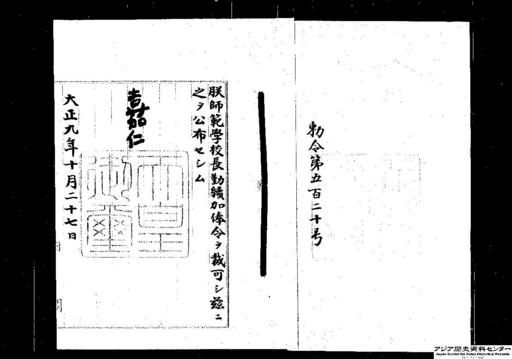 勅令第五百二十号
朕師範學校長勤續加俸令ヲ裁可シ茲ニ
之ヲ公布セシム
嘉仁
天皇御璽
大正九年十月二十七日
アジア歴史資料センター
Japan Center for Asian Historical Records